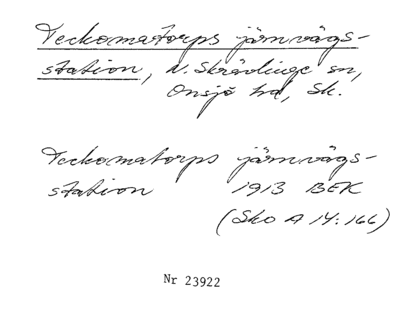 Teckomatorps järnvägs-
station, N. Skrävlinge sn,
Onsjö hd, Sk.
Teckomatorps järnvägs-
station 1913 BEK
(Sko A 14:166)
Nr 23922